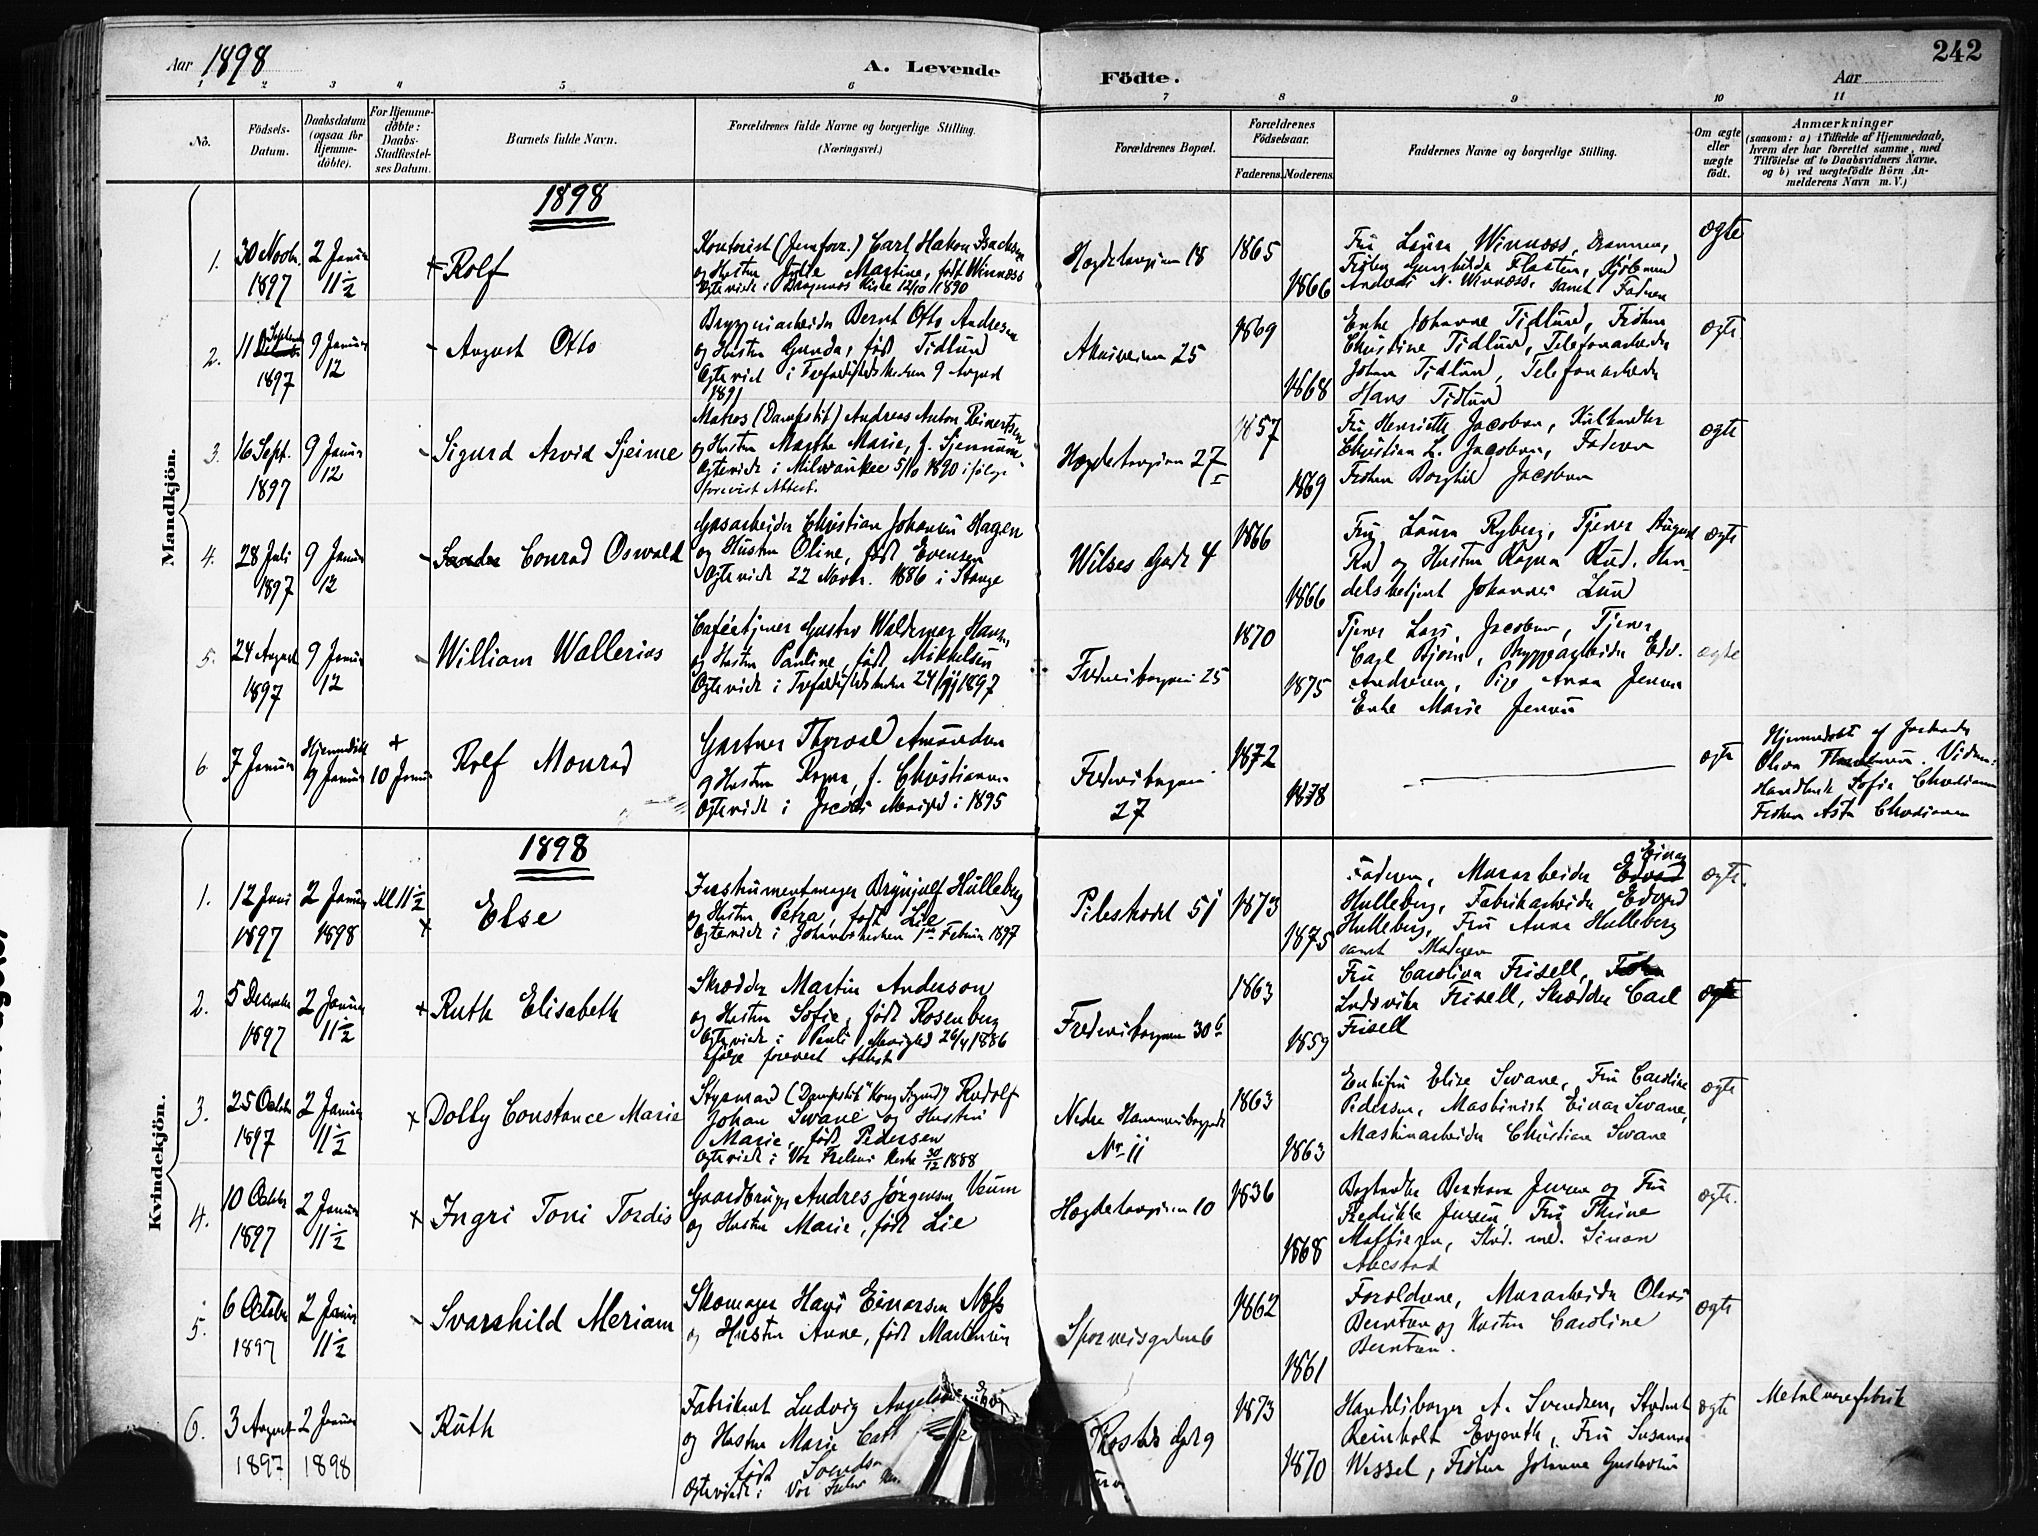 Aar 1898
A. Levende
Födte.
Aar
242
1 2 3 4 5 6 7 8 9 10 11
No.
Födsels-Datum.
Daabsdatum (ogsaa for Hjemmedöbte).
For Hjemmedöbte: Daabs-Stadfæstelses Datum.
Barnets fulde Navn.
Forældrenes fulde Navne og borgerlige Stilling.
(Næringsvei.)
Forældrenes Bopæl.
Forældrenes Födselsaar.
Faderens. Moderens.
Faddernes Navne og borgerlige Stilling.
Om ægte eller uægte födt.
Anmærkninger
(saasom: a) i Tilfælde af Hjemmedaab, hvem der har forrettet samme, med Tilföielse af to Daabsvidners Navne. og b) ved uægtefödte Börn Anmelderens Navn m. V.)
Mandkjön.
1898
1. 30 Novbr. 1897
2 Januar 11½
Rolf
Kontorist (Jernforr.) Carl Hakon Isachsen
og Hustru Julie Martine, født Winnæss
Ægteviede i Bragernæs Kirke 12/10 1890
Hægdehaugsveien 18
1865
1866
Fru Laura Winnæss, Drammen,
Frøken Gunhilda Flaaten, Kjøbmand
Andreas N. Winnæss, samt Faderen
ægte
2. 11 September 1897
9 Januar 12
August Otto
Bryggeriarbeider Bernt Otto Andresen
og Hustru Gunda, født Tidlund
Ægteviet i Trefoldighedskirken 9 August
1891
Akersveien 25
1869
1868
Enke Johanne Tidlund, Frøken
Christine Tidlund, Telefonarbeider
Johan Tidlund, Telefonarbeider
Hans Tidlund
ægte
3. 16 Sept. 1897
9 Januar 12
Sigurd Arvid Sjeime
Matros (Dampskib) Andreas Anton Reinertsen
og Hustru Magthe Marie, f.
Ægteviede i Milwaukee 5/10 1890 ifølge
forevist Attest.
Hægdehaugsveien 27 I
1857
1869
Fru Henriette Jacobsen, Kulhandler
Christian L. Jacobsen, Faderen
Frøken Borghild Jacobsen
ægte
4. 28 Juli 1897
9 Januar 12
Conrad Oswald
Gasarbeider Christian Johansen Hagen
og Hustru Oline, født Evensen
Ægteviede 22 Novbr. 1886 i Stange
Wilses Gade 4
1866
1866
Fru Laura Ryberg, Tjener August
Rud og Hustru Ragna Rud, Han-
delsbetjent Johannes Lund
ægte
5. 24 August 1897
9 Januar 12
William Wallerius
Cafétjener Gustav Waldemar Hansen
og Hustru Pauline, født Mikkelsen
Ægteviede i Trefoldighedskirken 24/ 1897
Fredensborgveien 25
1870
1875
Tjener Lars Jacobsen, Tjener
Carl Bjørn, Bryggearbeider Edv.
Andresen, Pige Anna Jensen
Enke Marie Jensen
ægte
6. 7 Januar
Hjemmedøbt 9 Januar
+ 10 Januar
Rolf Monrad
Gartner Thorvald Amundsen
og Hustru Ragna, f. Christiansen
Ægteviede i Jacobs Menighed i 1895
Fredensborgveien
27
1872
1878
ægte
Hjemmedøbt af Jordmoder
Olava . Vidner:
Handlerske Sofie Christiansen
Frøken Asta Christiansen
Kvindekjön.
1898
1. 12 Juni 1897
2 Januar 1898
Kl 11½
Else
Instrumentmager Brynjulf Hulleberg
og Hustru Petra, født Lie
Ægteviede i Johanneskirken 1ste Februar 1897
Pilestrædet 51
1873
1875
Faderen, Murarbeider Einar
Hulleberg, Fabrikarbeider Edvard
Hulleberg, Fru Anna Hulleberg
samt Moderen
ægte.
2. 5 December 1897
2 Januar 11½
Ruth Elisabeth
Skrædder Martin Anderson
og Hustru Sofie, født Rosenberg
Ægteviede i Pauli Menighed 26/4 1886
ifølge forevist Attest
Fredensborgveien 30 b
1863
1859
Fru Carolina Frisell, Frøken
Ludovika Frisell, Skrædder Carl
Frisell
ægte
3. 25 October 1897
2 Januar 11½
Dolly Constance Marie
Styrmand (Dampskib "Kong Sigurd") Rudolf
Johan Swane og Hustru
Marie, født Pedersen
Ægteviede i Vor Frelsers Kirke 30/12 1888
Nedre Hammersborggade
No 11
1863
1863
Enkefru Elise Swane, Fru Caroline
Pedersen, Maskinist Einar Swane,
Maskinarbeider Christian Swane
ægte
4. 10 October 1897
2 Januar 11½
Ingri Toni Tordis
Gaardbruger Andres Jörgensen Veum
og Hustru Marie, født Lie
Hægdehaugsveien 10
1836
1868
Boghandler Bertrand Jensen og Fru
Fredrikke Jensen, Fru Thrine
Mathiesen, Stud. med. Simon
ægte.
5. 6 October 1897
2 Januar 11½
Svanhild Meriam
Skomager Hans Einarsen Næss
og Hustru Anne, født Martinsen
Sporveisgaden 6
1862
1861
Forældrene, Murarbeider Olaves
Berntsen og Hustru Caroline
Berntsen.
ægte
6. 3 August 1897
2 Januar 1898
Ruth
Fabrikant Ludvig
og Hustru Marie
født Svendsen
Ægteviede i Vor Frelsers
9
1873
1870
Handelsborger A. Svendsen, Student
Reinholt Evjenth, Fru Susanna
Wessel, Frøken Johanne Gustavsen
ægte
Metalvarefabrik